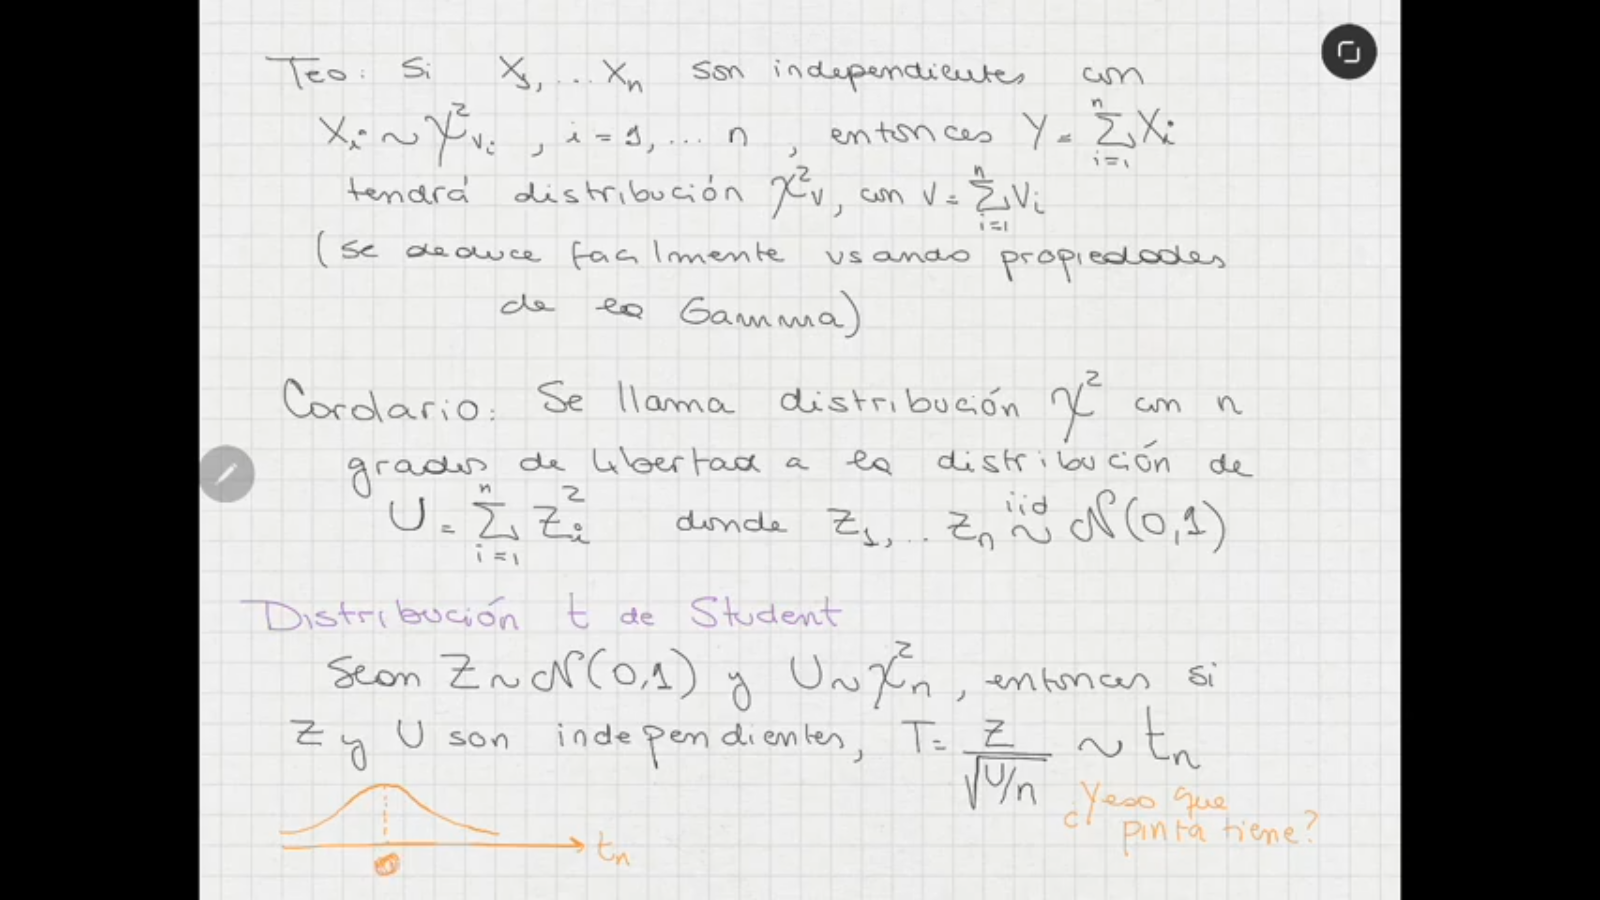 Teo: Si X₁,...Xₙ son independientes con
Xᵢ ~ χ²_{νᵢ}, i = 1,... n, entonces Y = ∑_{i=1}^{n} Xᵢ
tendrá distribución χ²_ν, con ν = ∑_{i=1}^{n} νᵢ
(se deduce facilmente usando propiedades
de la Gamma)
Corolario: Se llama distribución χ² con n
grados de libertad a la distribución de
U = ∑_{i=1}^{n} Zᵢ² donde Z₁,.. Zₙ iid ~ N(0,1)
Distribución t de Student
Sean Z ~ N(0,1) y U ~ χ²ₙ, entonces si
Z y U son independientes, T = Z / √(U/n) ~ tₙ
¿Y eso que
pinta tiene?
tₙ